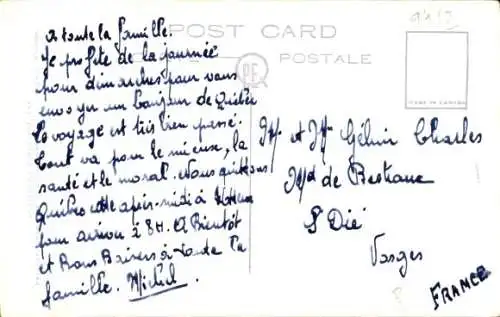 POST CARD
POSTALE
PE
MADE IN CANADA
A toute la famille.
Je profite de la journée
pour dimanches pour vous
envoyer un bonjour de Québec
Le voyage est très bien passé.
Tout va pour le mieux, la
santé et le moral. Nous quittons
Québec cette après-midi à
pour à 8H. A Bientôt
et Bons Baisers à toute la
famille. Michel.
Mr et Mme Gélin Charles
Md de Bestiaux
St Dié
Vosges
FRANCE